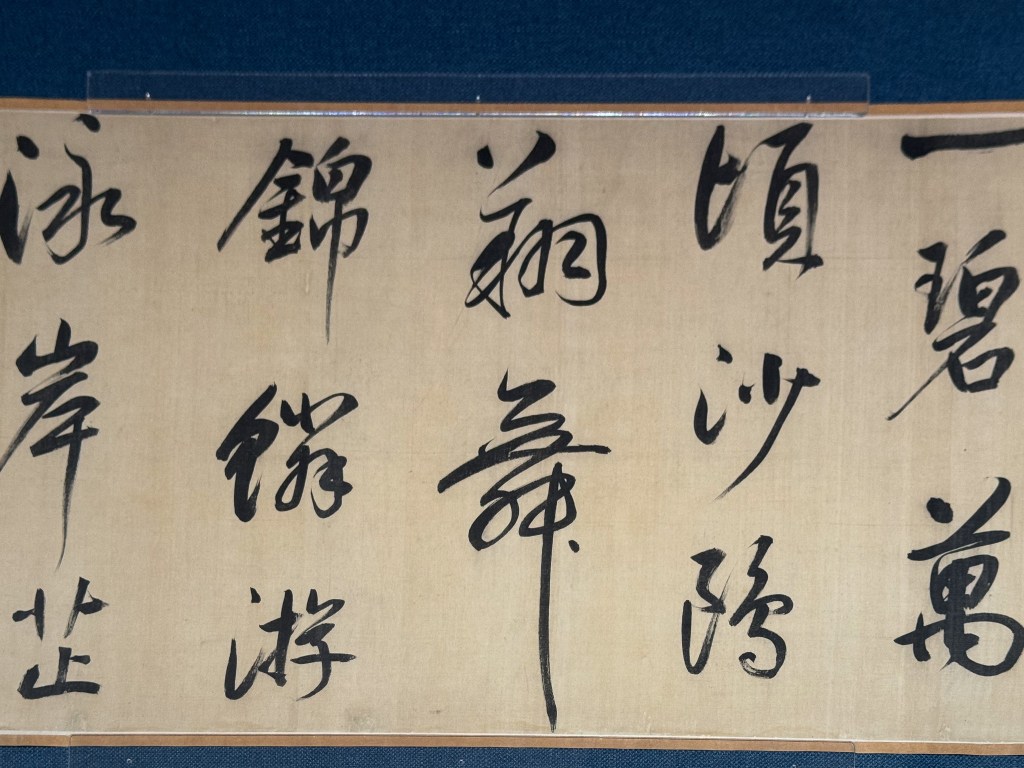 一碧萬
頃沙鷗
翔舞
錦鱗游
泳岸芷